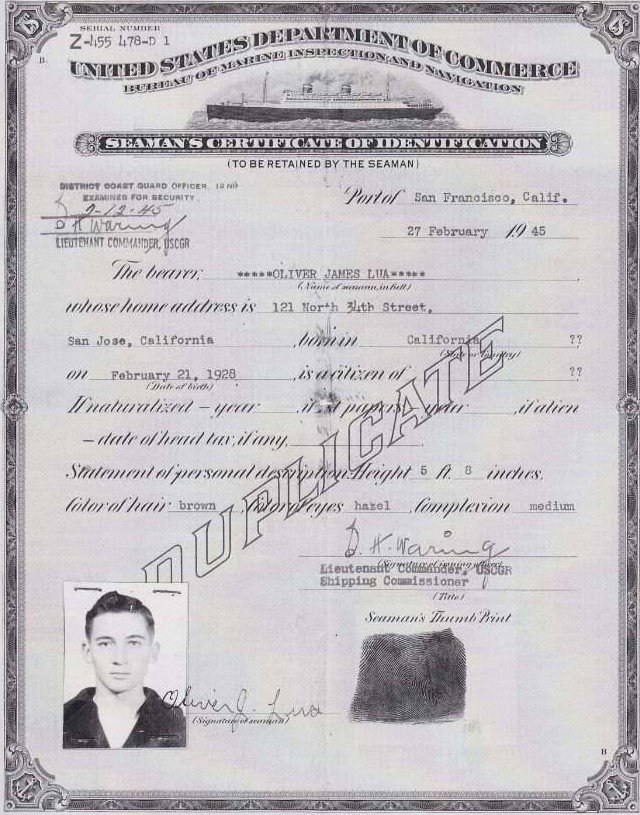 SERIAL NUMBER
Z-455 478-D 1
B.
UNITED STATES DEPARTMENT OF COMMERCE
BUREAU OF MARINE INSPECTION AND NAVIGATION
SEAMAN'S CERTIFICATE OF IDENTIFICATION
(TO BE RETAINED BY THE SEAMAN)
DISTRICT COAST GUARD OFFICER, 12 ND
EXAMINED FOR SECURITY.
2-12-45
D H Waring
LIEUTENANT COMMANDER, USCGR
Port of San Francisco, Calif.
27 February 1945
The bearer, *****OLIVER JAMES LUA*****
(Name of seaman, in full)
whose home address is 121 North 34th Street,
San Jose, California , born in California ??
(State or country)
on February 21, 1928 , is a citizen of ??
(Date of birth)
If naturalized – year , if 1st papers, year , if alien
– date of head tax, if any, .
Statement of personal description: Height 5 ft. 8 inches,
Color of hair brown , Color of eyes hazel , Complexion medium
DUPLICATE
D. H. Waring
(Signature of signing officer)
Lieutenant Commander, USCGR
Shipping Commissioner
(Title)
Seaman's Thumb Print
Oliver J. Lua
(Signature of seaman)
B